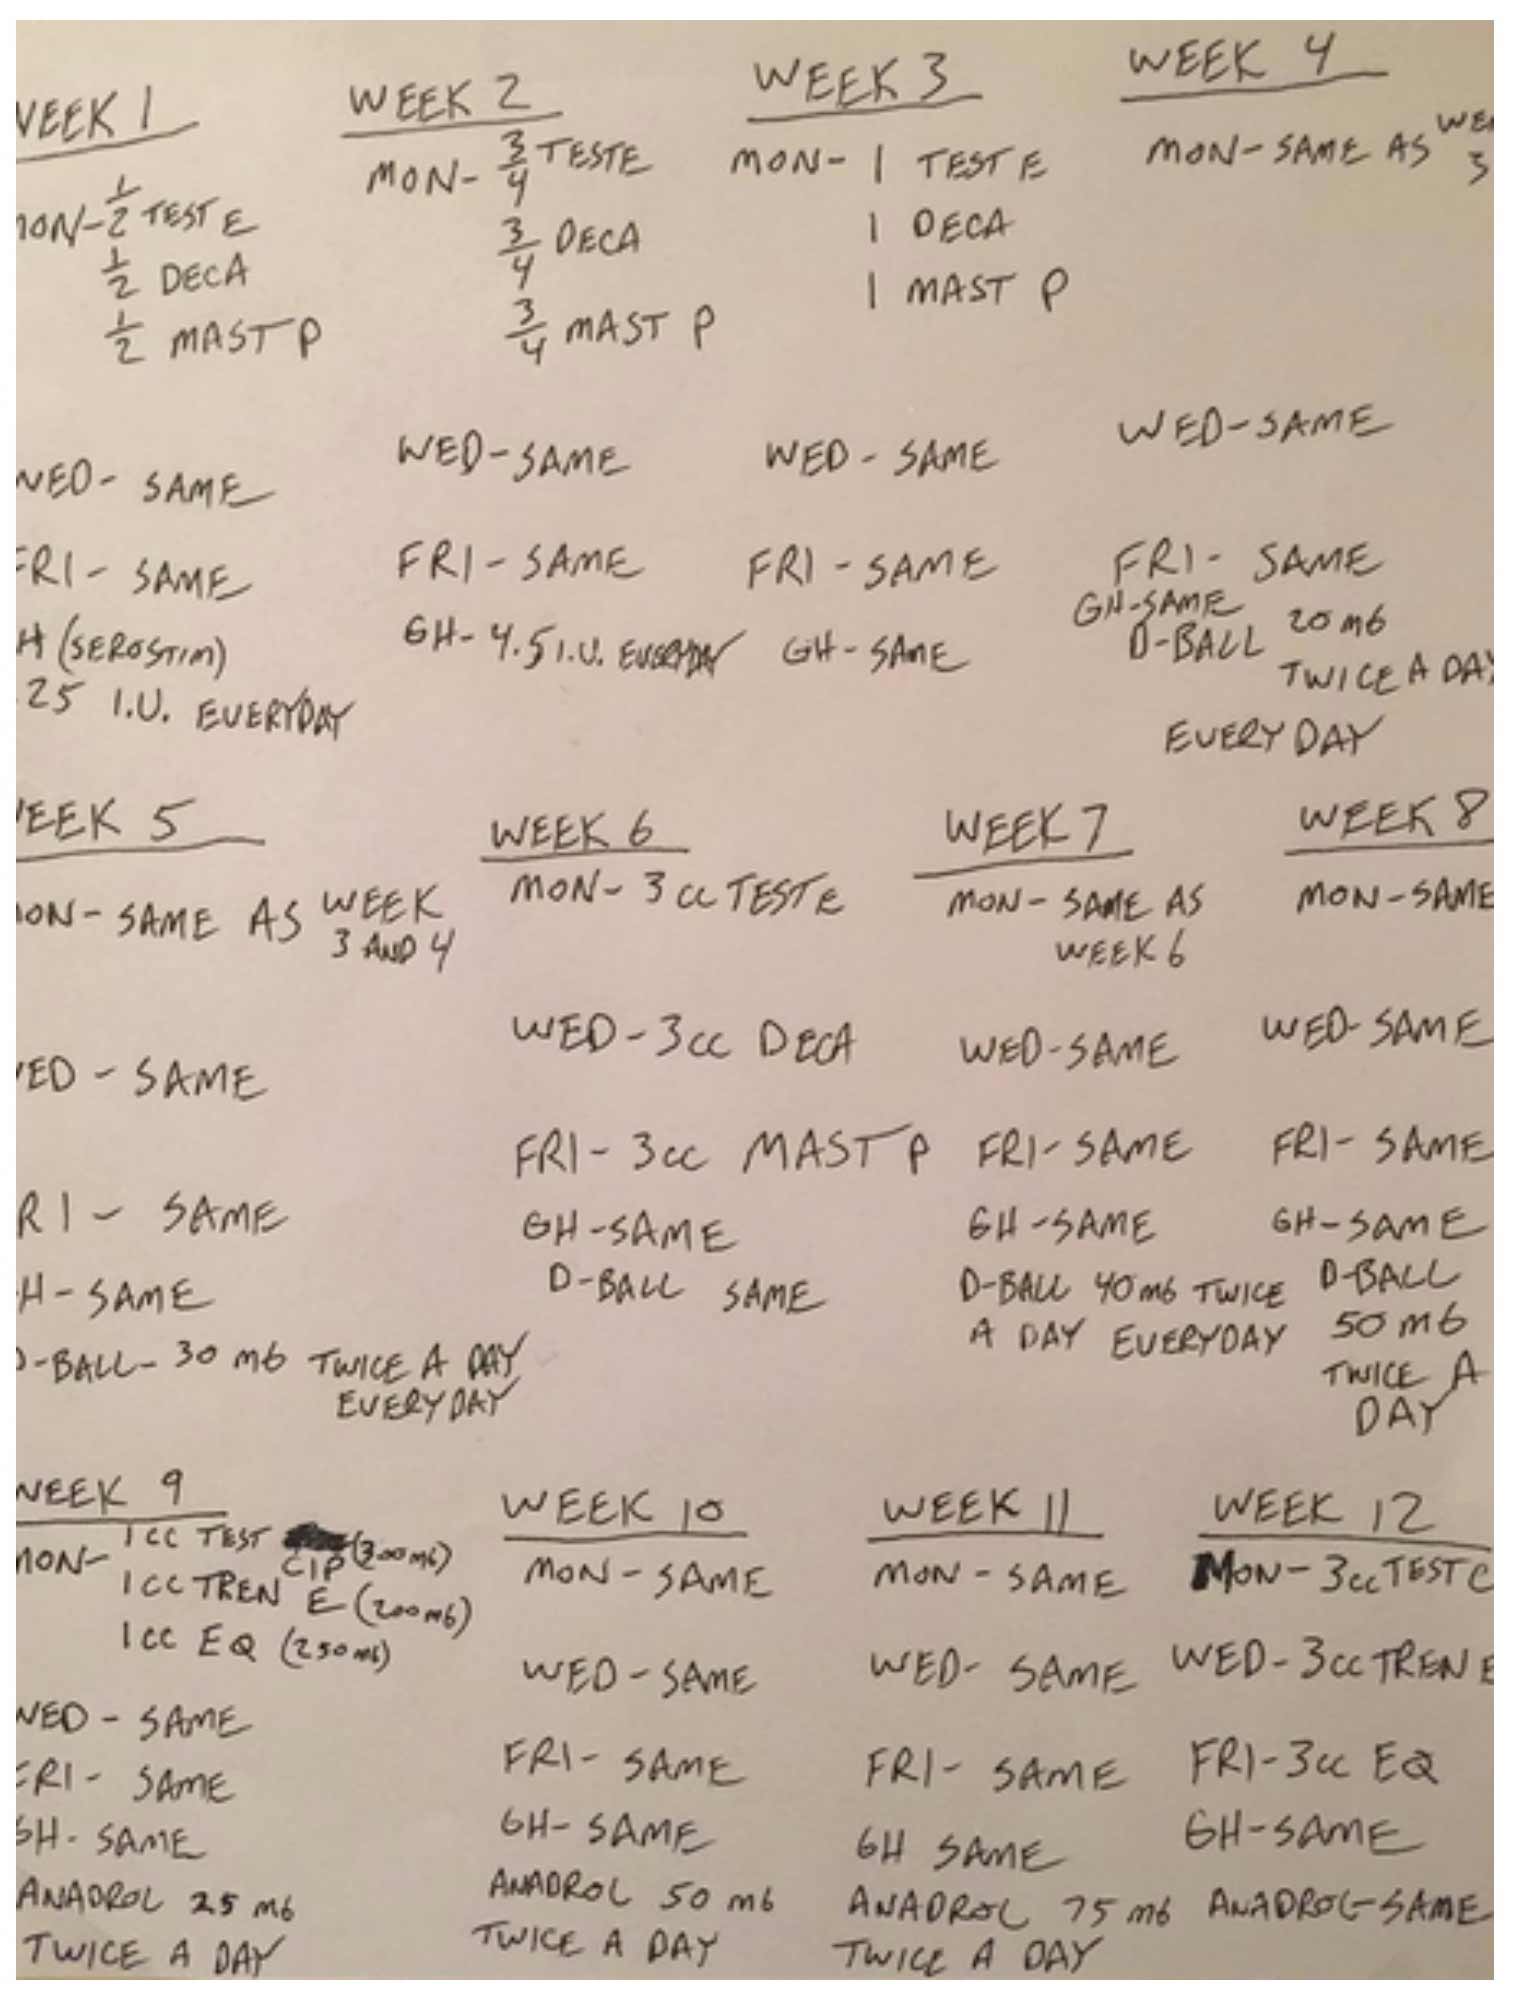 WEEK 1
MON- 1/2 TEST E
1/2 DECA
1/2 MAST P
WED- SAME
FRI- SAME
H (SEROSTIM)
.25 I.U. EVERYDAY
WEEK 2
MON- 3/4 TEST E
3/4 DECA
3/4 MAST P
WED-SAME
FRI-SAME
GH-4.5 I.U. EVERYDAY
WEEK 3
MON- 1 TEST E
1 DECA
1 MAST P
WED-SAME
FRI-SAME
GH-SAME
WEEK 4
MON-SAME AS WEE
3
WED-SAME
FRI- SAME
GH-SAME
D-BALL 20 MG
TWICE A DAY
EVERY DAY
WEEK 5
MON-SAME AS WEEK
3 AND 4
WED-SAME
FRI- SAME
H-SAME
D-BALL- 30 MG TWICE A DAY
EVERYDAY
WEEK 6
MON- 3cc TEST E
WED-3cc DECA
FRI-3cc MAST P
GH-SAME
D-BALL SAME
WEEK 7
MON-SAME AS
WEEK 6
WED-SAME
FRI-SAME
GH-SAME
D-BALL 40 MG TWICE
A DAY EVERYDAY
WEEK 8
MON-SAME
WED-SAME
FRI-SAME
GH-SAME
D-BALL
50 MG
TWICE A
DAY
WEEK 9
MON- 1cc TEST CIP (300 MG)
1cc TREN E (200 MG)
1cc EQ (250 MG)
WED-SAME
FRI-SAME
GH-SAME
ANADROL 25 MG
TWICE A DAY
WEEK 10
MON-SAME
WED-SAME
FRI-SAME
GH-SAME
ANADROL 50 MG
TWICE A DAY
WEEK 11
MON-SAME
WED- SAME
FRI- SAME
GH SAME
ANADROL 75 MG
TWICE A DAY
WEEK 12
MON-3cc TEST C
WED-3cc TREN E
FRI-3cc EQ
GH-SAME
ANADROL-SAME